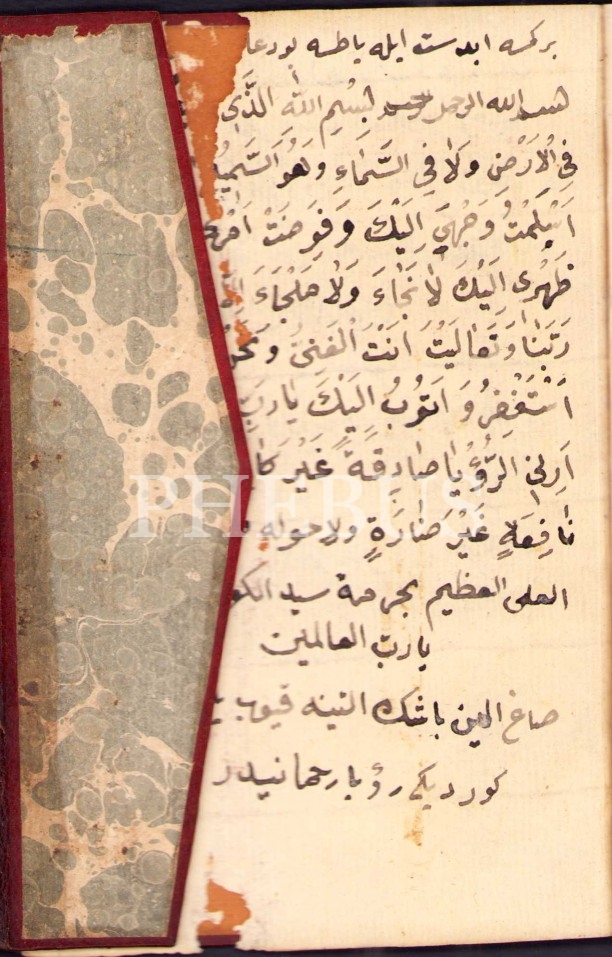 بركمسه ابدست ايله ياطسه بو دعا
بسم الله الرحمن الرحيم بِسْمِ اللّٰهِ الَّذِي
فِي الْاَرْضِ وَلَا فِي السَّمَاءِ وَهُوَ السَّمِيعُ
اَسْلَمْتُ وَجْهِيَ اِلَيْكَ وَفَوَضْتُ اَمْرِي
ظَهْرِى اِلَيْكَ لَا نَجَاءَ وَلَا مَلْجَاءَ
رَبَّنَا وَتَعَالَيْتَ اَنْتَ الْغَنِيُّ وَنَحْنُ
اَسْتَغْفِرُ وَ اَتُوبُ اِلَيْكَ يَارَبِّ
اَرِنِي الرُّؤْيَا صَادِقَةً غَيْرَ كَا
نَافِعَةٍ غَيْرَ ضَارَّةٍ ولا حوله
العلى العظيم بحرمة سيد الكو
يارب العالمين
صاغ الين باشك التينه قيوب
كورديكى رؤيا رحمانيدر
PHEBUS